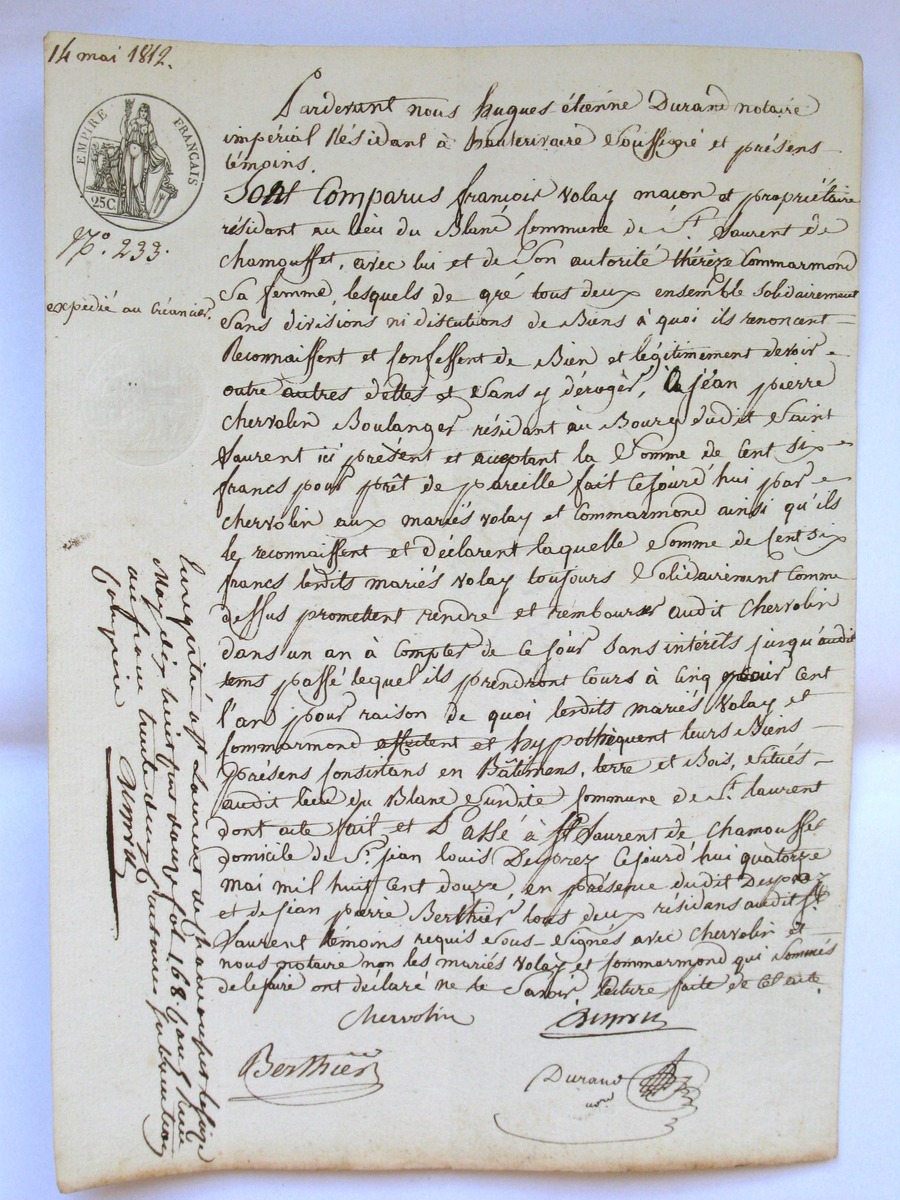 14 mai 1812.
EMPIRE FRANÇAIS
25C.
N.º 233.
expédié au Créancier.
Pardevant nous hugues-étienne Durand notaire
impérial Résidant à hauterivoire soussigné et présens
témoins.
Sont Comparus françois Volay macon et propriétaire
résidant au lieu du Blanc Commune de St. Laurent de
chamousset, avec lui et de son autorité thérèze Commarmond
sa femme, lesquels de gré tous deux ensemble solidairement
sans divisions ni discutions de Biens à quoi ils renoncent
Reconnaissent et Confessent de Bien et légitimement devoir
outre autres dettes et sans y déroger, à jéan pierre
Chervolin Boulanger résidant au Bourg dudit Saint
Laurent ici présent et acceptant la somme de Cent six
francs pour prêt de pareille fait Cejourd'hui par
Chervolin aux mariés Volay et Commarmond ainsi qu'ils
le reconnaissent et déclarent laquelle somme de Cent six
francs lesdits mariés Volay toujours solidairement Comme
dessus promettent rendre et rembourser audit Chervolin
dans un an à Compter de Ce jour sans intérêts jusqu'audit
tems passé lequel ils prendront Cours à Cinq pour Cent
l'an, pour raison de quoi lesdits mariés Volay et
Commarmond affectent et hypothèquent leurs Biens
présens Consistans en Bâtimens, terre et Bois, situés
audit lieu du Blanc susdite Commune de St. Laurent
dont acte fait et Passé à St. Laurent de Chamousset
domicile de Sr. jean louis Desprez Cejourd'hui quatorze
mai mil huit Cent douze, en présence dudit Desprez
et de jean pierre Berthier tous deux résidans audit St.
Laurent témoins requis sous-signés avec Chervolin et
nous notaire non les mariés Volay et Commarmond qui sommés
de le faire ont déclaré ne le savoir, lecture faite de Cet acte
Chervolin
Desprez
Berthier
Durand
nore
Enregistré à St Laurent de chamousset le seize
May dix huit cent douze fol. 168.
au franc trente deux centimes subvention
comprise
Desprez